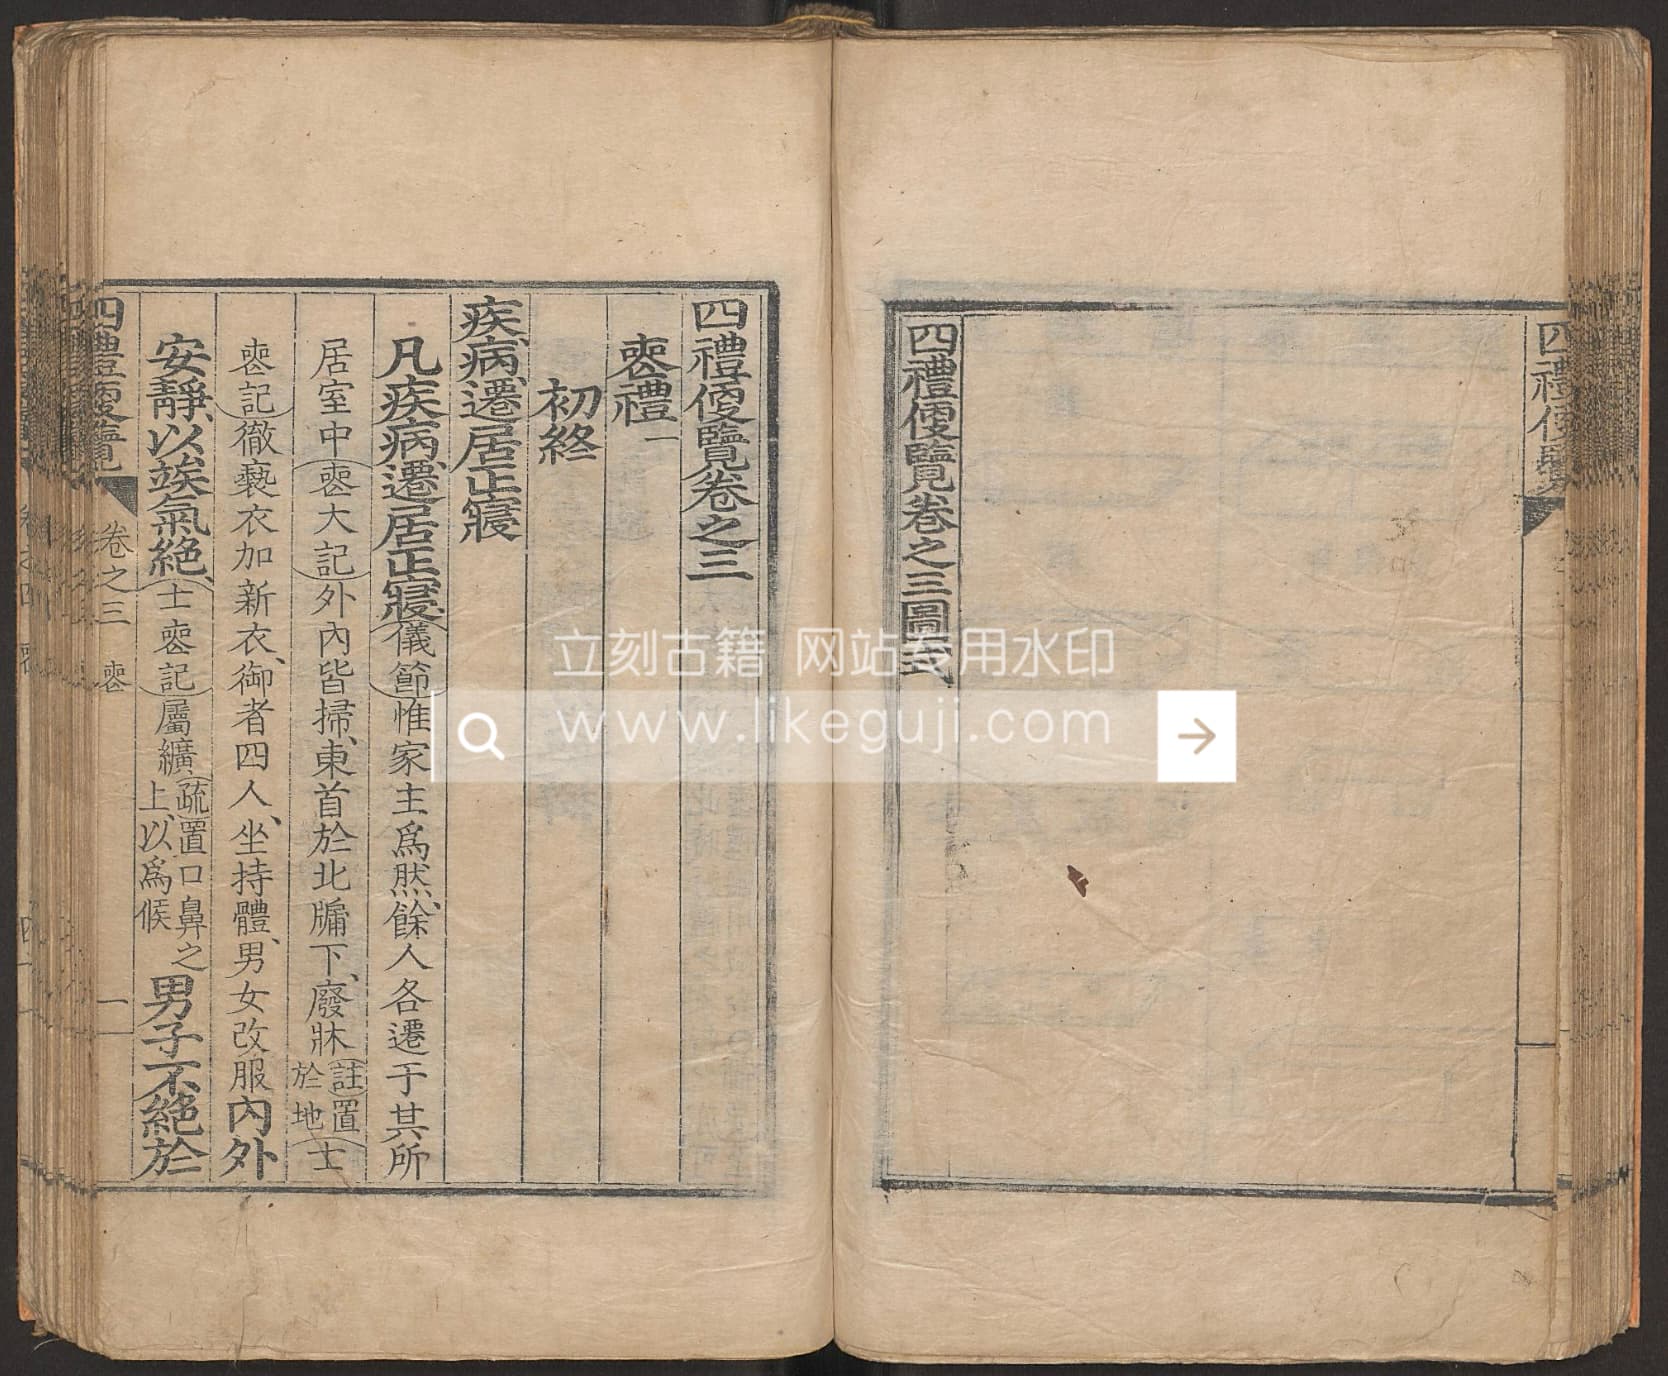 四禮便
四禮便覽卷之三圖式
四禮便覽卷之三
喪禮一
初終
疾病遷居正寢
凡疾病遷居正寢儀節惟家主爲然餘人各遷于其所
居室中喪大記外內皆掃東首於北牖下廢牀註置於地士
喪記徹褻衣加新衣御者四人坐持體男女改服內外
安靜以竢氣絶士喪記屬纊疏置口鼻之上以爲候男子不絶於
四禮便覽 卷之三 喪 一
立刻古籍 网站专用水印
www.likeguji.com